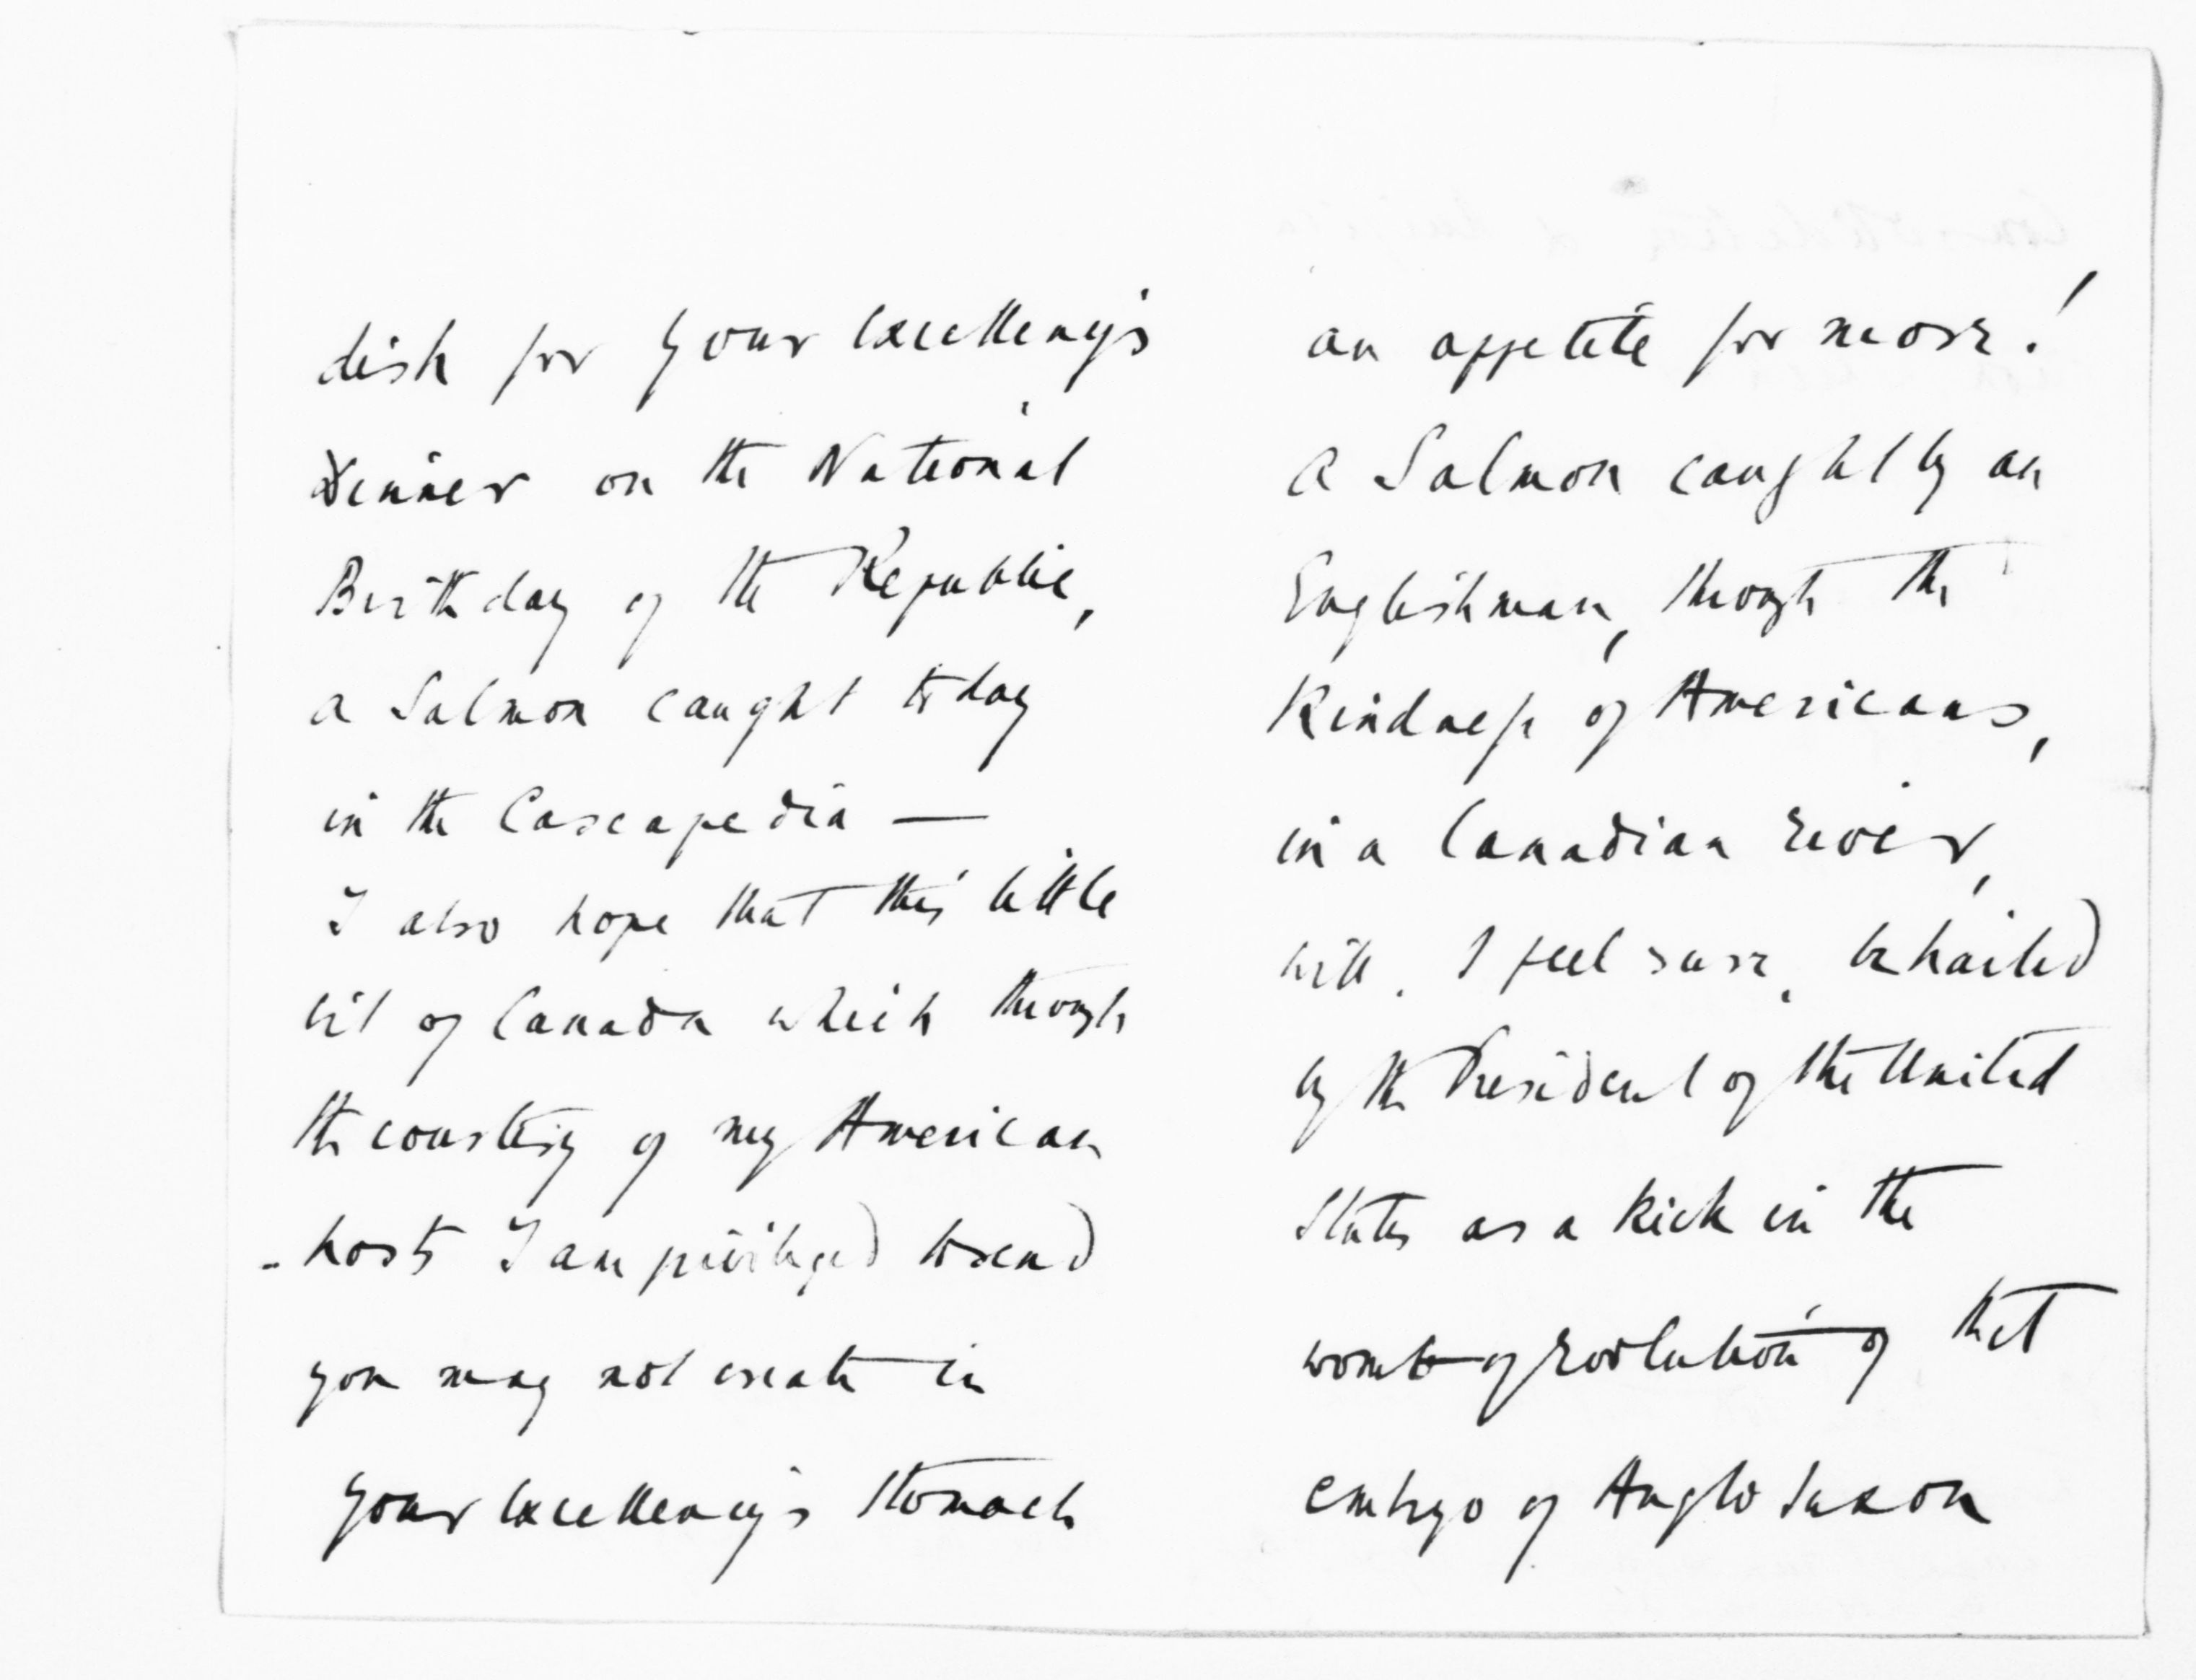 dish for Your Excellency's
dinner on the National
Birthday of the Republic,
a Salmon caught today
in the Cascapedia —
I also hope that this little
bit of Canada which through
the courtesy of my American
- hosts I am privileged to send
you may not create in
your Excellency's Stomach
an appetite for more!
A Salmon caught by an
Englishman, through the
Kindness of Americans,
in a Canadian river,
will, I feel sure, be hailed
by the President of the United
States as a kick in the
womb of Evolution of that
embryo of Anglo Saxon